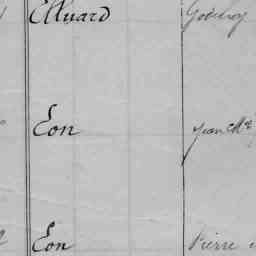 Elluard Godefroy
Eon Jean Mie
Eon Pierre